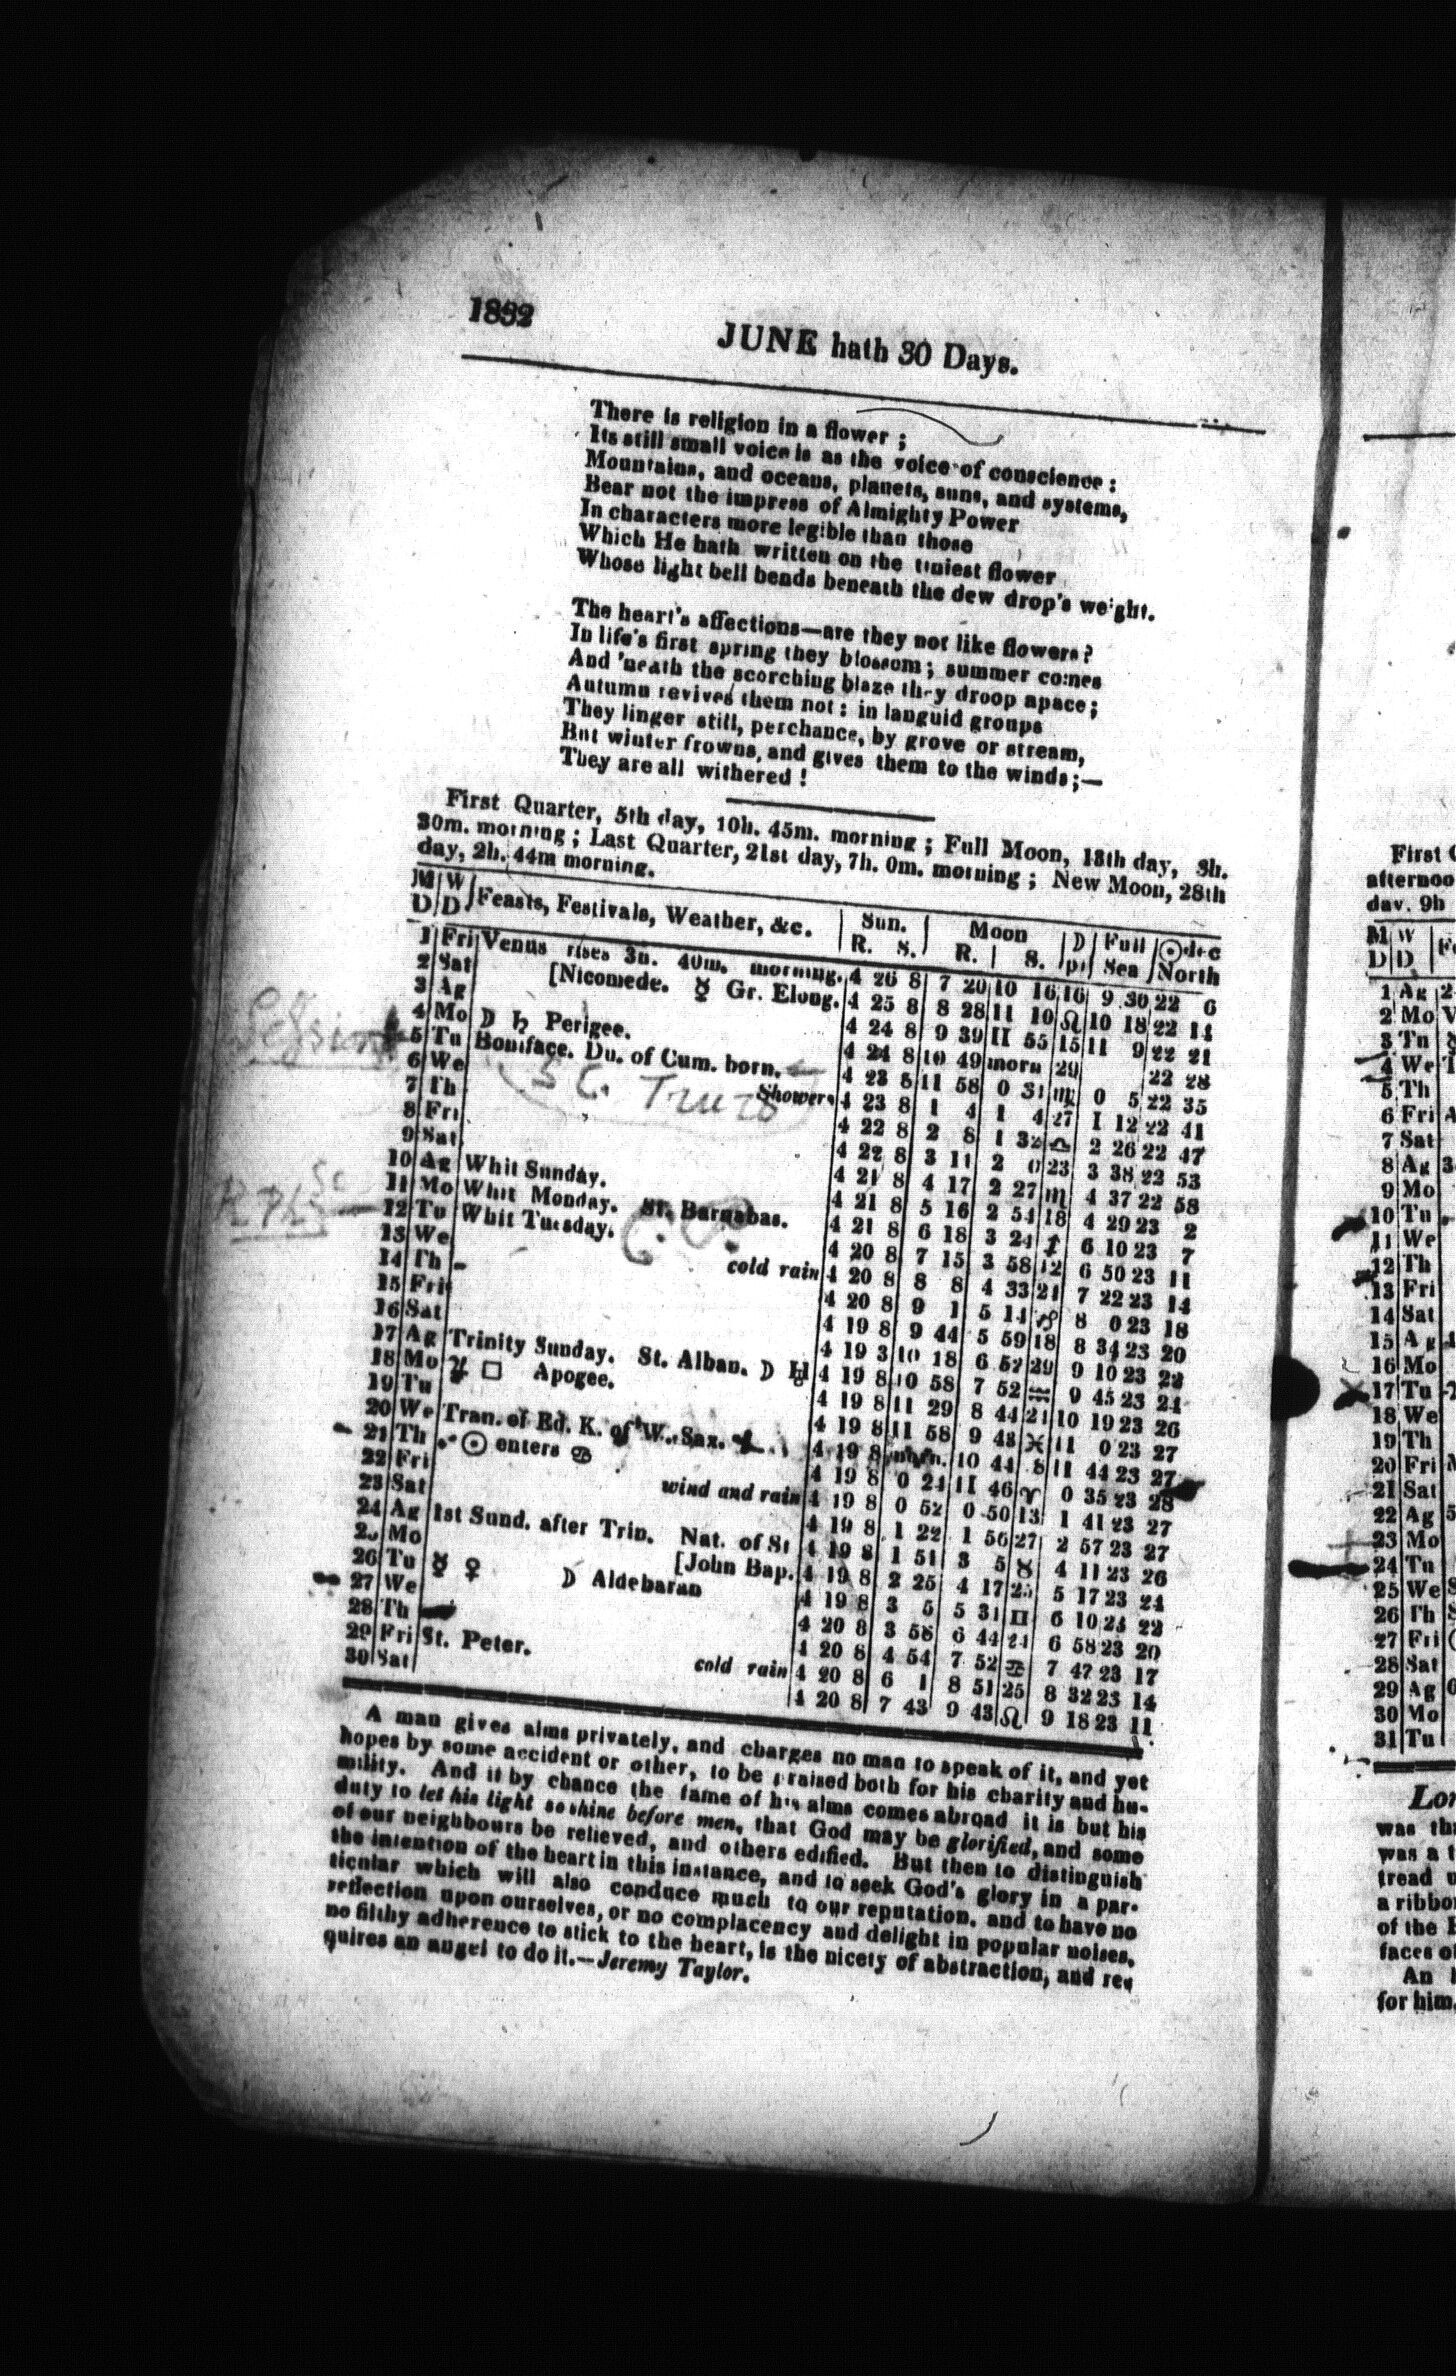 1832
JUNE hath 30 Days.
There is religion in a flower ;
Its still small voice is as the voice of conscience :
Mountains, and oceans, planets, suns, and systems,
Bear not the impress of Almighty Power
In characters more legible than those
Which He hath written on the tiniest flower
Whose light bell bends beneath the dew drop's weight.
The heart's affections—are they not like flowers?
In life's first spring they blossom; summer comes
And 'neath the scorching blaze they droop apace;
Autumn revives them not: in languid groups
They linger still, perchance, by grove or stream,
But winter frowns, and gives them to the winds;—
They are all withered !
First Quarter, 5th day, 10h. 45m. morning ; Full Moon, 13th day, 3h.
30m. morning ; Last Quarter, 21st day, 7h. 0m. morning ; New Moon, 28th
day, 2h. 44m morning.
M W Feasts, Festivals, Weather, &c. Sun. Moon ☽ Full ☉dec
D D R. S. R. S. pl Sea North
1 Fri Venus rises 3h. 40m. morning. 4 26 8 7 20 10 16 16 9 30 22 6
2 Sat [Nicomede. ☿ Gr. Elong. 4 25 8 8 28 11 10 ♌ 10 18 22 14
3 Ag 4 24 8 9 39 11 55 15 11 9 22 21
4 Mo ☽ ♄ Perigee. 4 24 8 10 49 morn 29 22 28
5 Tu Boniface. Du. of Cum. born. 4 23 8 11 58 0 31 ♍ 0 5 22 35
6 We Showers 4 23 8 1 4 1 4 27 1 12 22 41
7 Th 4 22 8 2 8 1 32 ♎ 2 26 22 47
8 Fri 4 22 8 3 11 2 0 23 3 38 22 53
9 Sat 4 21 8 4 17 2 27 ♏ 4 37 22 58
10 Ag Whit Sunday. 4 21 8 5 16 2 54 18 4 29 23 2
11 Mo Whit Monday. St. Barnabas. 4 21 8 6 18 3 24 ♐ 6 10 23 7
12 Tu Whit Tuesday. 4 20 8 7 15 3 58 12 6 50 23 11
13 We cold rain 4 20 8 8 8 4 33 24 7 22 23 14
14 Th 4 20 8 9 1 5 14 ♑ 8 0 23 18
15 Fri 4 19 8 9 44 5 59 18 8 34 23 20
16 Sat 4 19 8 10 18 6 52 29 9 10 23 22
17 Ag Trinity Sunday. St. Alban. ☽ ♅ 4 19 8 10 58 7 52 ♒ 9 45 23 24
18 Mo ♃ □ Apogee. 4 19 8 11 29 8 44 24 10 19 23 26
19 Tu 4 19 8 11 58 9 43 ♓ 11 0 23 27
20 We Tran. of Ed. K. of W. Sax. 4 19 8 morn. 10 44 8 11 44 23 27
21 Th ☉ enters ♋ 4 19 8 0 24 11 46 ♈ 0 35 23 28
22 Fri wind and rain 4 19 8 0 52 0 50 13 1 41 23 27
23 Sat 4 19 8 1 22 1 56 27 2 57 23 27
24 Ag 1st Sund. after Trin. Nat. of St 4 19 8 1 51 3 5 ♉ 4 11 23 26
25 Mo [John Bap. 4 19 8 2 25 4 17 25 5 17 23 24
26 Tu ☿ ♀ ☽ Aldebaran 4 19 8 3 5 5 31 ♊ 6 10 23 22
27 We 4 20 8 3 58 6 44 24 6 58 23 20
28 Th 4 20 8 4 54 7 52 ♋ 7 47 23 17
29 Fri St. Peter. cold rain 4 20 8 6 1 8 51 25 8 32 23 14
30 Sat 4 20 8 7 43 9 43 ♌ 9 18 23 11
A man gives alms privately, and charges no man to speak of it, and yet
hopes by some accident or other, to be praised both for his charity and hu-
mility. And if by chance the fame of his alms comes abroad it is but his
duty to let his light so shine before men, that God may be glorified, and some
of our neighbours be relieved, and others edified. But then to distinguish
the intention of the heart in this instance, and to seek God's glory in a par-
ticular which will also conduce much to our reputation. and to have no
reflection upon ourselves, or no complacency and delight in popular noises,
no filthy adherence to stick to the heart, is the nicety of abstraction, and re-
quires an angel to do it.—Jeremy Taylor.
First
afternoo
day. 9h
M W
D D
1 Ag 2
2 Mo
3 Tu
4 We
5 Th
6 Fri
7 Sat
8 Ag 3
9 Mo
10 Tu
11 We
12 Th
13 Fri
14 Sat
15 Ag
16 Mo
17 Tu
18 We
19 Th
20 Fri
21 Sat
22 Ag 5
23 Mo
24 Tu
25 We
26 Th
27 Fri
28 Sat
29 Ag 6
30 Mo
31 Tu
Lor
was th
was a t
tread u
a ribbo
of the
faces o
An
for him,